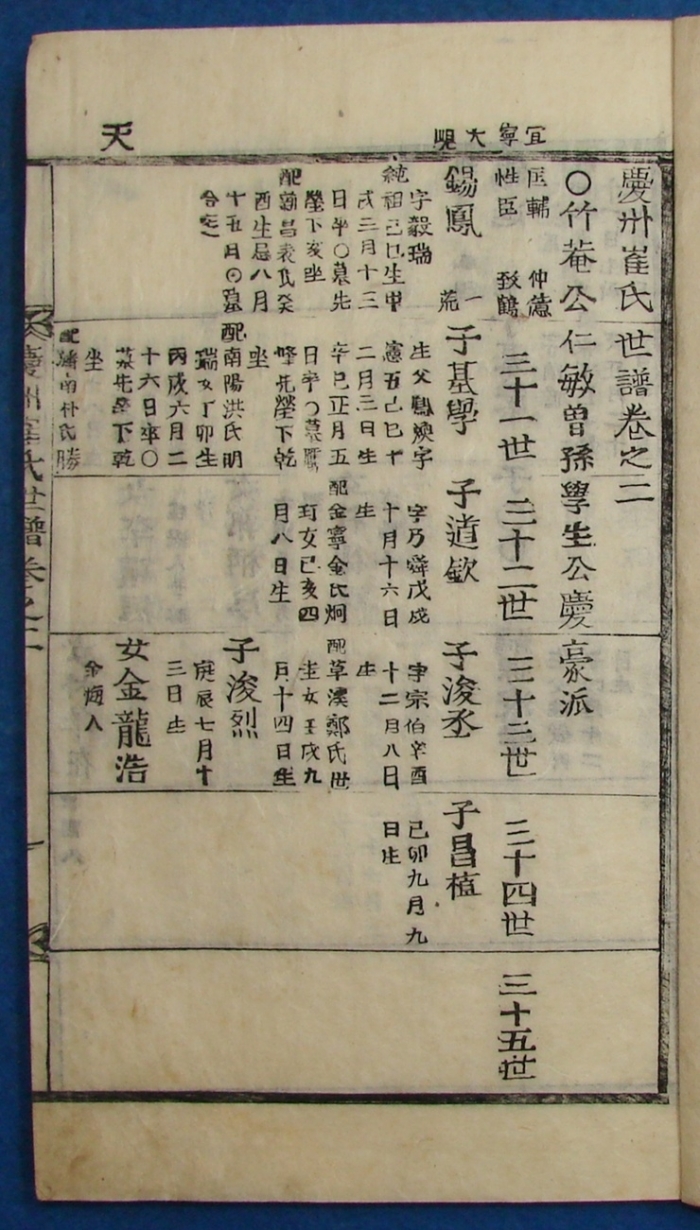 宜寧大峴
天
慶州崔氏世譜卷之二
○竹菴公仁敏曾孫學生公慶豪派
匡輔 仲德
性臣 致鶴
三十一世
三十二世
三十三世
三十四世
三十五世
錫鳳
一
字毅瑞
純祖己巳生甲
戌三月十三
日卒○墓先
塋下亥坐
配
氏癸
酉生忌八月
十五日○墓
子基學
生父 字
憲五己巳十
二月三日生
辛巳正月五
日卒○墓
峰先塋下乾
坐
配南陽洪氏明
瑞女丁卯生
丙戌六月二
十六日卒○
墓先塋下乾
坐
朴氏勝
子道欽
字乃舜戊戌
十月十六日
生
配金寧金氏炯
玎女己亥四
月八日生
子浚丞
字宗伯辛酉
十二月八日
生
配草溪鄭氏世
生女壬戌九
月十四日生
子浚烈
庚辰七月十
三日生
女金龍浩
金海人
子昌植
己卯九月九
日生
慶州崔氏世譜卷之二
一